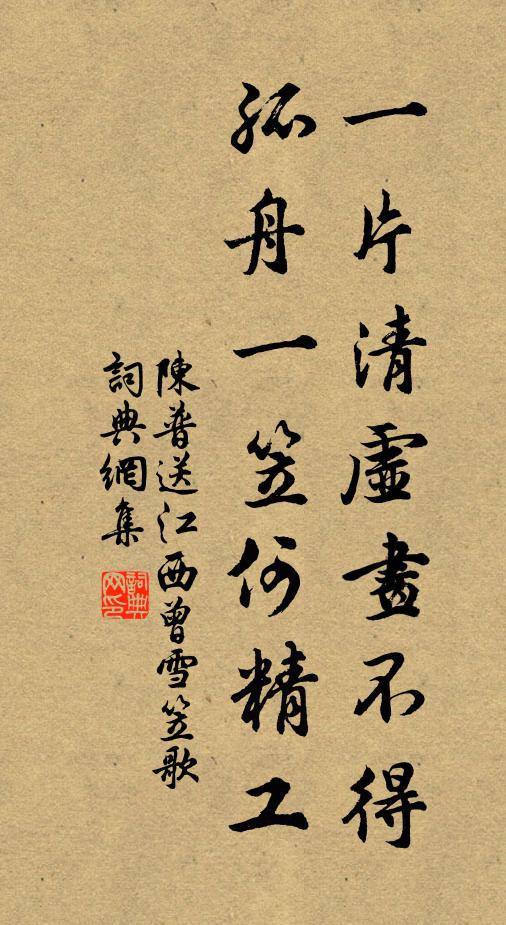 一片清虛畫不得
孤舟一笠何精工
陳普送江西曾雪笠歌
詞典網集
詞典网印